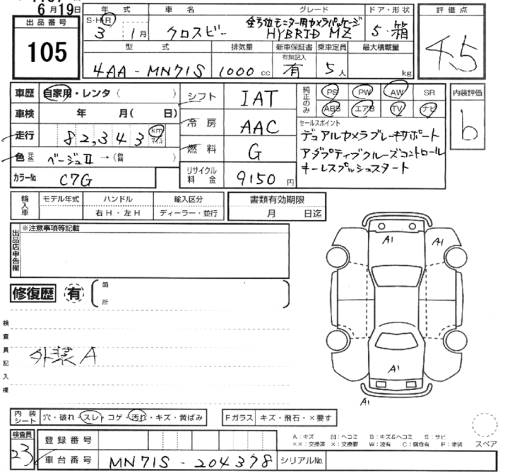 6月19日
出品番号
105
年式 車名 グレード ドア・形状
S・H・R 3 1月 クロスビー 全方位モニター用カメラパッケージ HYBRID MZ 5・箱
型式 排気量 新車保証書 乗車定員 最大積載量
有 記入
4AA-MN71S 1000cc 有 5人 kg
評価点
4.5
内装評価
b
車歴 自家用・レンタ( )
車検 年 月( 日)
走行 82,343 km
色 ベージュⅡ →(
カラーNo C7G
シフト IAT
冷房 AAC
燃料 G
リサイクル料金 9150円
純正のみ PS PW AW SR
ABS エアB TV ナビ
セールスポイント
デュアルカメラブレーキサポート
アダプティブクルーズコントロール
キーレスプッシュスタート
輸入車 モデル年式 ハンドル 輸入区分
右H・左H ディーラー・並行
書類有効期限
月 日迄
出品店申告欄
※注意事項等記載
修復歴 有
箇所
検査員記入欄
外装A
A1 A1
A1
内装シート 穴・破れ・スレ・コゲ・汚れ・キズ・黄ばみ
Fガラス キズ・飛石・×要す
スペア
検査員
23
登録番号
車台番号 MN71S-204378 シリアルNo.